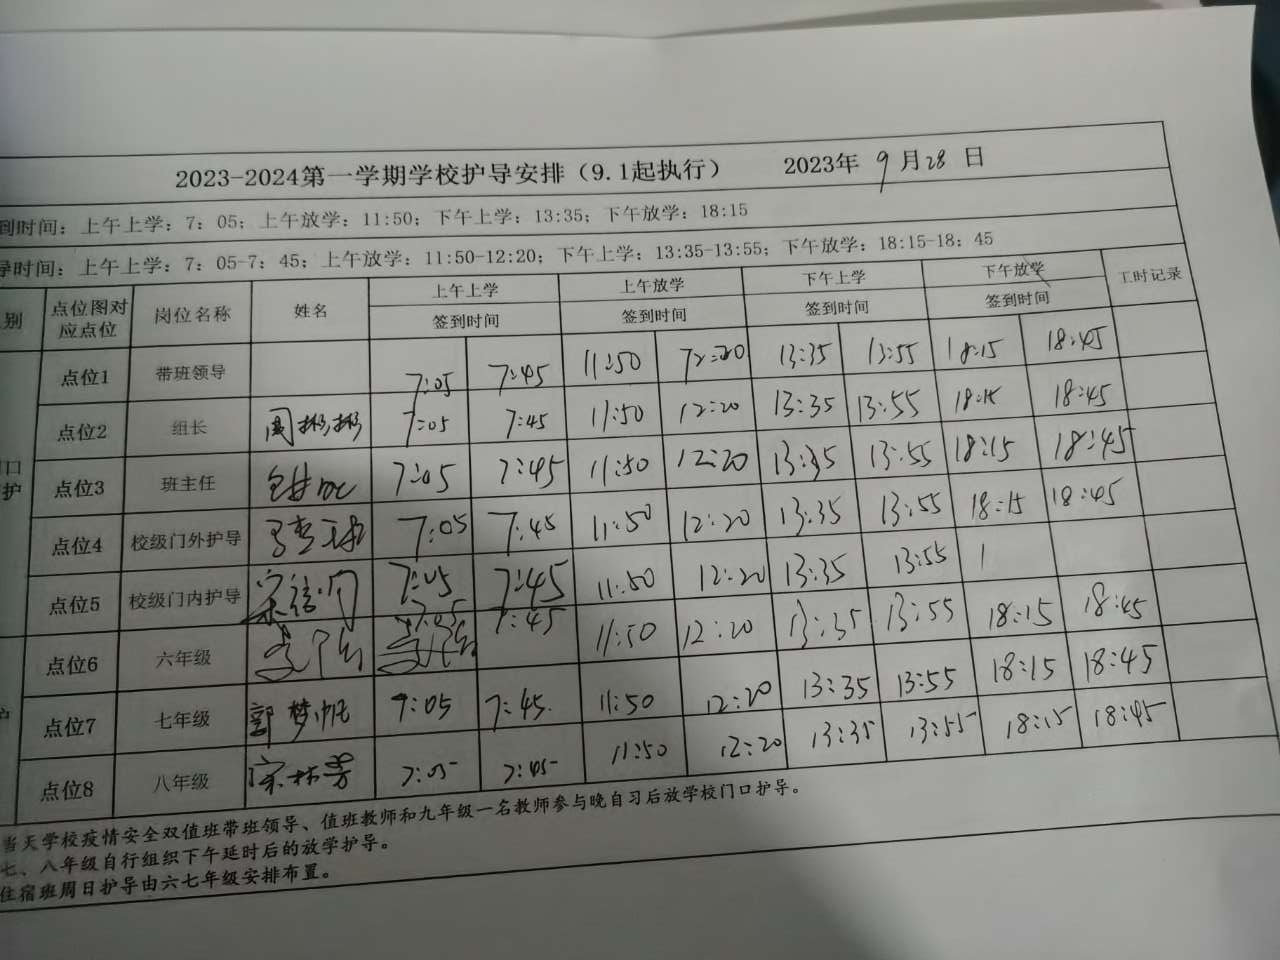 2023-2024第一学期学校护导安排（9.1起执行） 2023年 9 月 28 日
到时间：上午上学：7：05；上午放学：11:50；下午上学：13:35；下午放学：18:15
导时间：上午上学：7：05-7：45；上午放学：11:50-12:20；下午上学：13:35-13:55；下午放学：18:15-18：45
别 点位图对应点位 岗位名称 姓名 上午上学 上午放学 下午上学 下午放学 工时记录
签到时间 签到时间 签到时间 签到时间
点位1 带班领导 7:05 7:45 11:50 12:20 13:35 13:55 18:15 18:45
点位2 组长 周彬彬 7:05 7:45 11:50 12:20 13:35 13:55 18:15 18:45
口护 点位3 班主任 7:05 7:45 11:50 12:20 13:35 13:55 18:15 18:45
点位4 校级门外护导 7:05 7:45 11:50 12:20 13:35 13:55 18:15 18:45
点位5 校级门内护导 7:05 7:45 11:50 12:20 13:35 13:55 1
点位6 六年级 7:05 7:45 11:50 12:20 13:35 13:55 18:15 18:45
护 点位7 七年级 郭梦帆 7:05 7:45. 11:50 12:20 13:35 13:55 18:15 18:45
点位8 八年级 7:05 7:45 11:50 12:20 13:35 13:55 18:15 18:45
当天学校疫情安全双值班带班领导、值班教师和九年级一名教师参与晚自习后放学校门口护导。
七、八年级自行组织下午延时后的放学护导。
住宿班周日护导由六七年级安排布置。